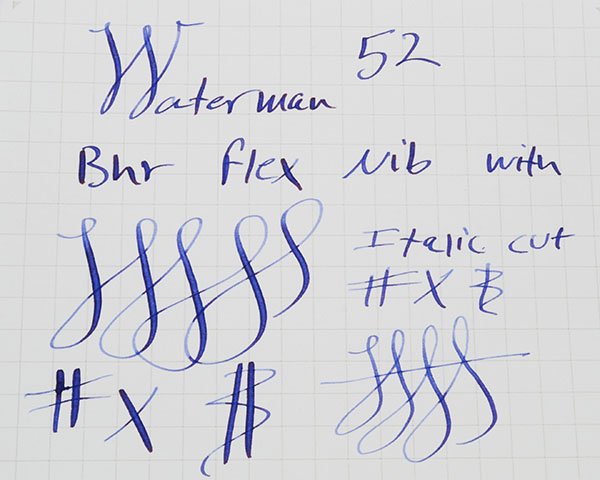 Waterman 52
Bhr flex Nib with
Italic cut
# X B
# X B